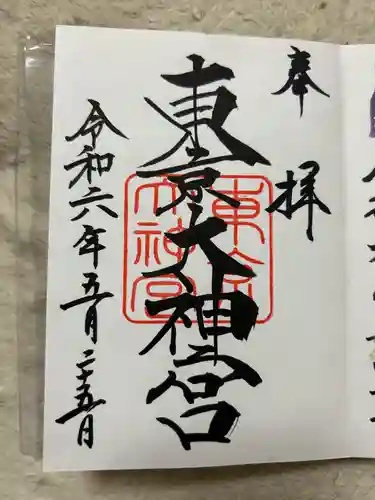 奉拝
東京大神宮
東京大神宮
令和六年五月二十五月